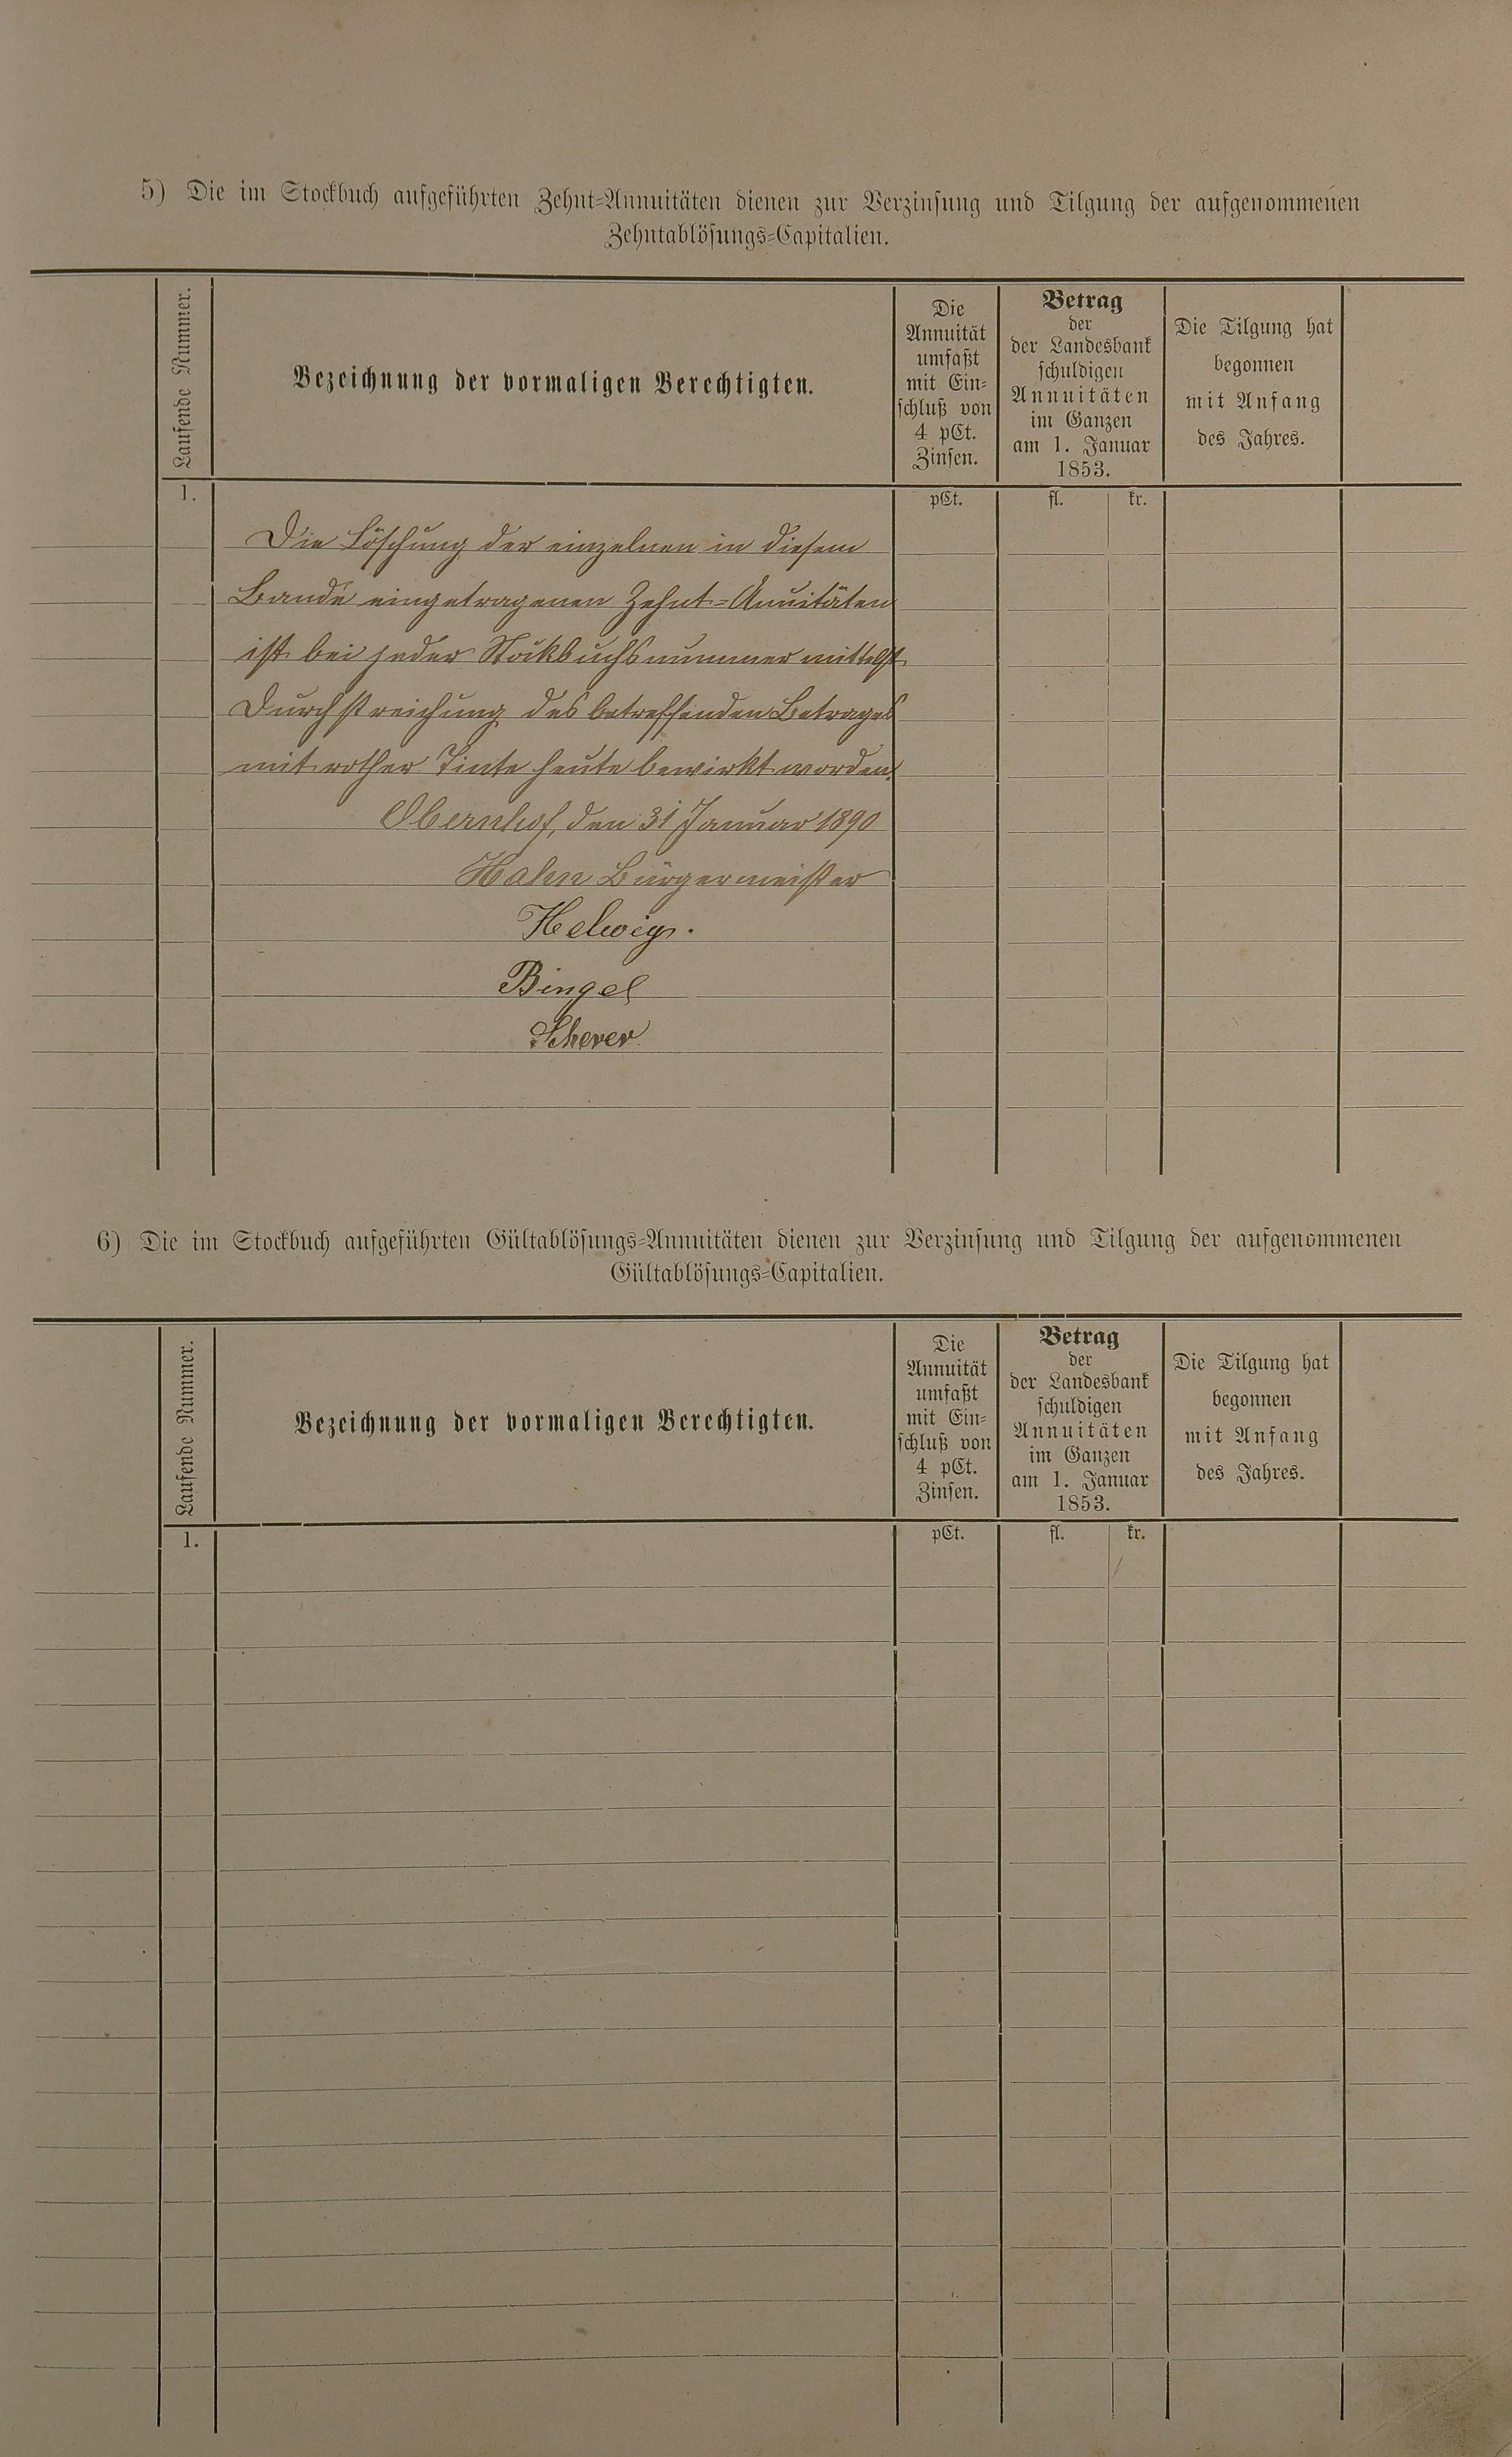 5) Die im Stockbuch aufgeführten Zehnt-Annuitäten dienen zur Verzinsung und Tilgung der aufgenommenen
Zehntablösungs-Capitalien.
Laufende Nummer.
Bezeichnung der vormaligen Berechtigten.
Die
Annuität
umfaßt
mit Ein-
schluß von
4 pCt.
Zinsen.
Betrag
der
der Landesbank
schuldigen
Annuitäten
im Ganzen
am 1. Januar
1853.
Die Tilgung hat
begonnen
mit Anfang
des Jahres.
1.
pCt.
fl.
kr.
Die Löschung der einzelnen in diesem
Bande eingetragenen Zehnt-Anuitäten
ist bei jeder Stockbuchsnummer mittelst
Durchstreichung des betreffenden Betrages
mit rother Tinte heute bewirkt worden.
Obernhof, den 31 Januar 1890
Hahn Bürgermeister
Helwig.
Bingel
Scherer
6) Die im Stockbuch aufgeführten Gültablösungs-Annuitäten dienen zur Verzinsung und Tilgung der aufgenommenen
Gültablösungs-Capitalien.
Laufende Nummer.
Bezeichnung der vormaligen Berechtigten.
Die
Annuität
umfaßt
mit Ein-
schluß von
4 pCt.
Zinsen.
Betrag
der
der Landesbank
schuldigen
Annuitäten
im Ganzen
am 1. Januar
1853.
Die Tilgung hat
begonnen
mit Anfang
des Jahres.
1.
pCt.
fl.
kr.